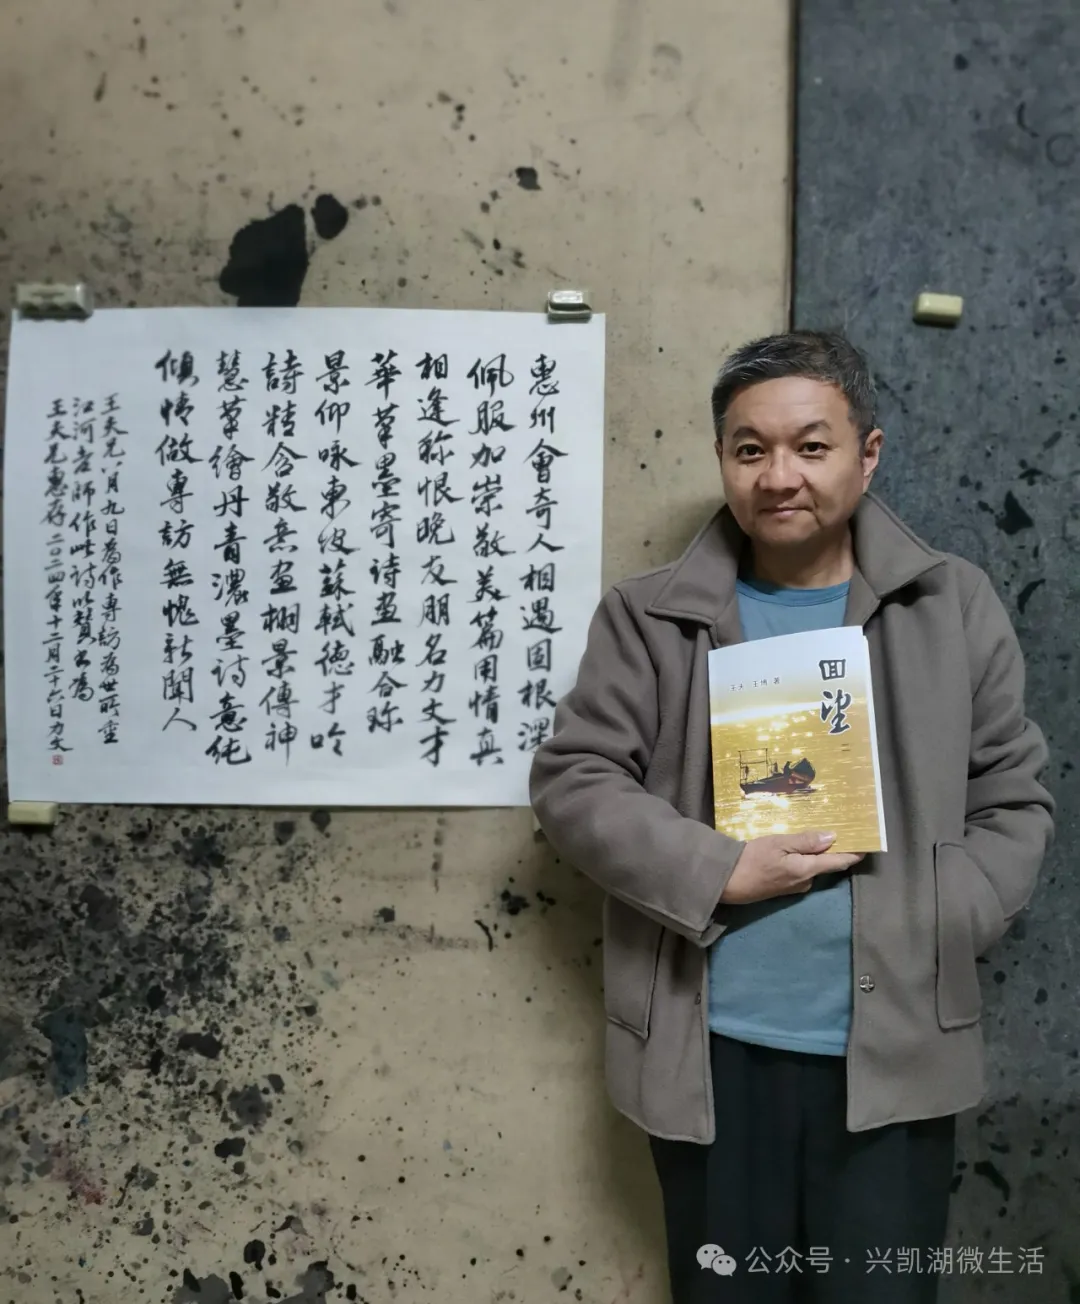 惠州會奇人相遇固根深
佩服加崇敬美篇用情真
相逢称恨晚友朋名力文才
華筆墨寄诗畫融合珎
景仰咏東坡蘇軾德才吟
詩精含敬意畫栩景傳神
慧筆繪丹青濃墨詩意純
傾情做專訪無愧新聞人
王天兄八月九日為作專訪為世所重
江河老師作此詩以贊書為
王天兄惠存二〇二四年十二月二十六日力文
王天 王博 著
回望
二
公众号·兴凯湖微生活